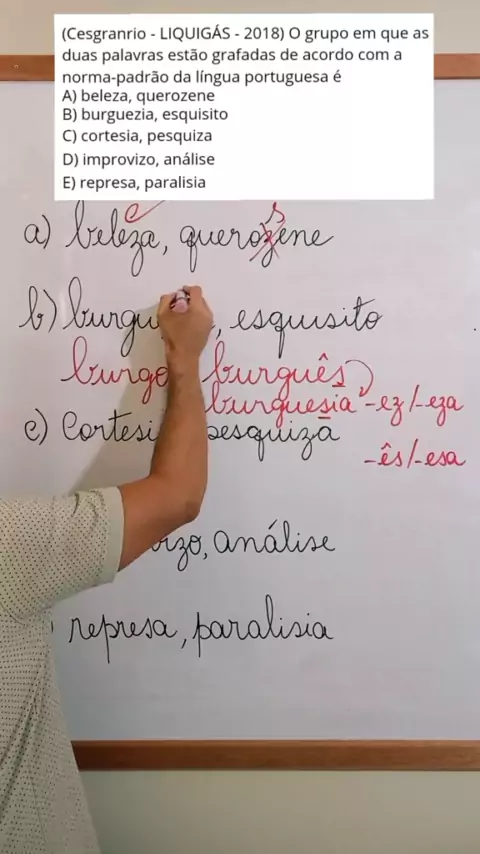 (Cesgranrio - LIQUIGÁS - 2018) O grupo em que as
duas palavras estão grafadas de acordo com a
norma-padrão da língua portuguesa é
A) beleza, querozene
B) burguezia, esquisito
C) cortesia, pesquiza
D) improvizo, análise
E) represa, paralisia
a) beleza, querozene
s
b) burgu , esquisito
burgo burguês
burguesia -ez/-eza
c) Cortesi pesquiza
-ês/-esa
izo, análise
represa, paralisia